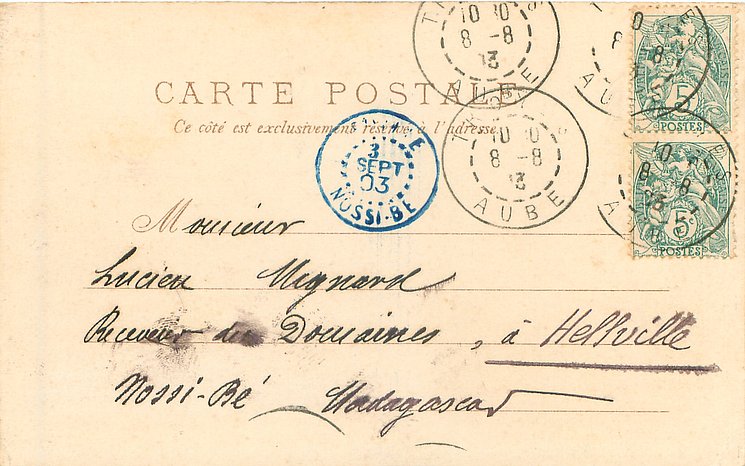 CARTE POSTALE
Ce côté est exclusivement réservé à l'adresse.
10 30
8 -8
AUBE
10 30
8 -8
AUBE
5
POSTES
5
POSTES
3
SEPT
03
NOSSI-BÉ
Monsieur
Lucien Mignard
Receveur des Domaines, à Hellville
Nossi-Bé Madagascar